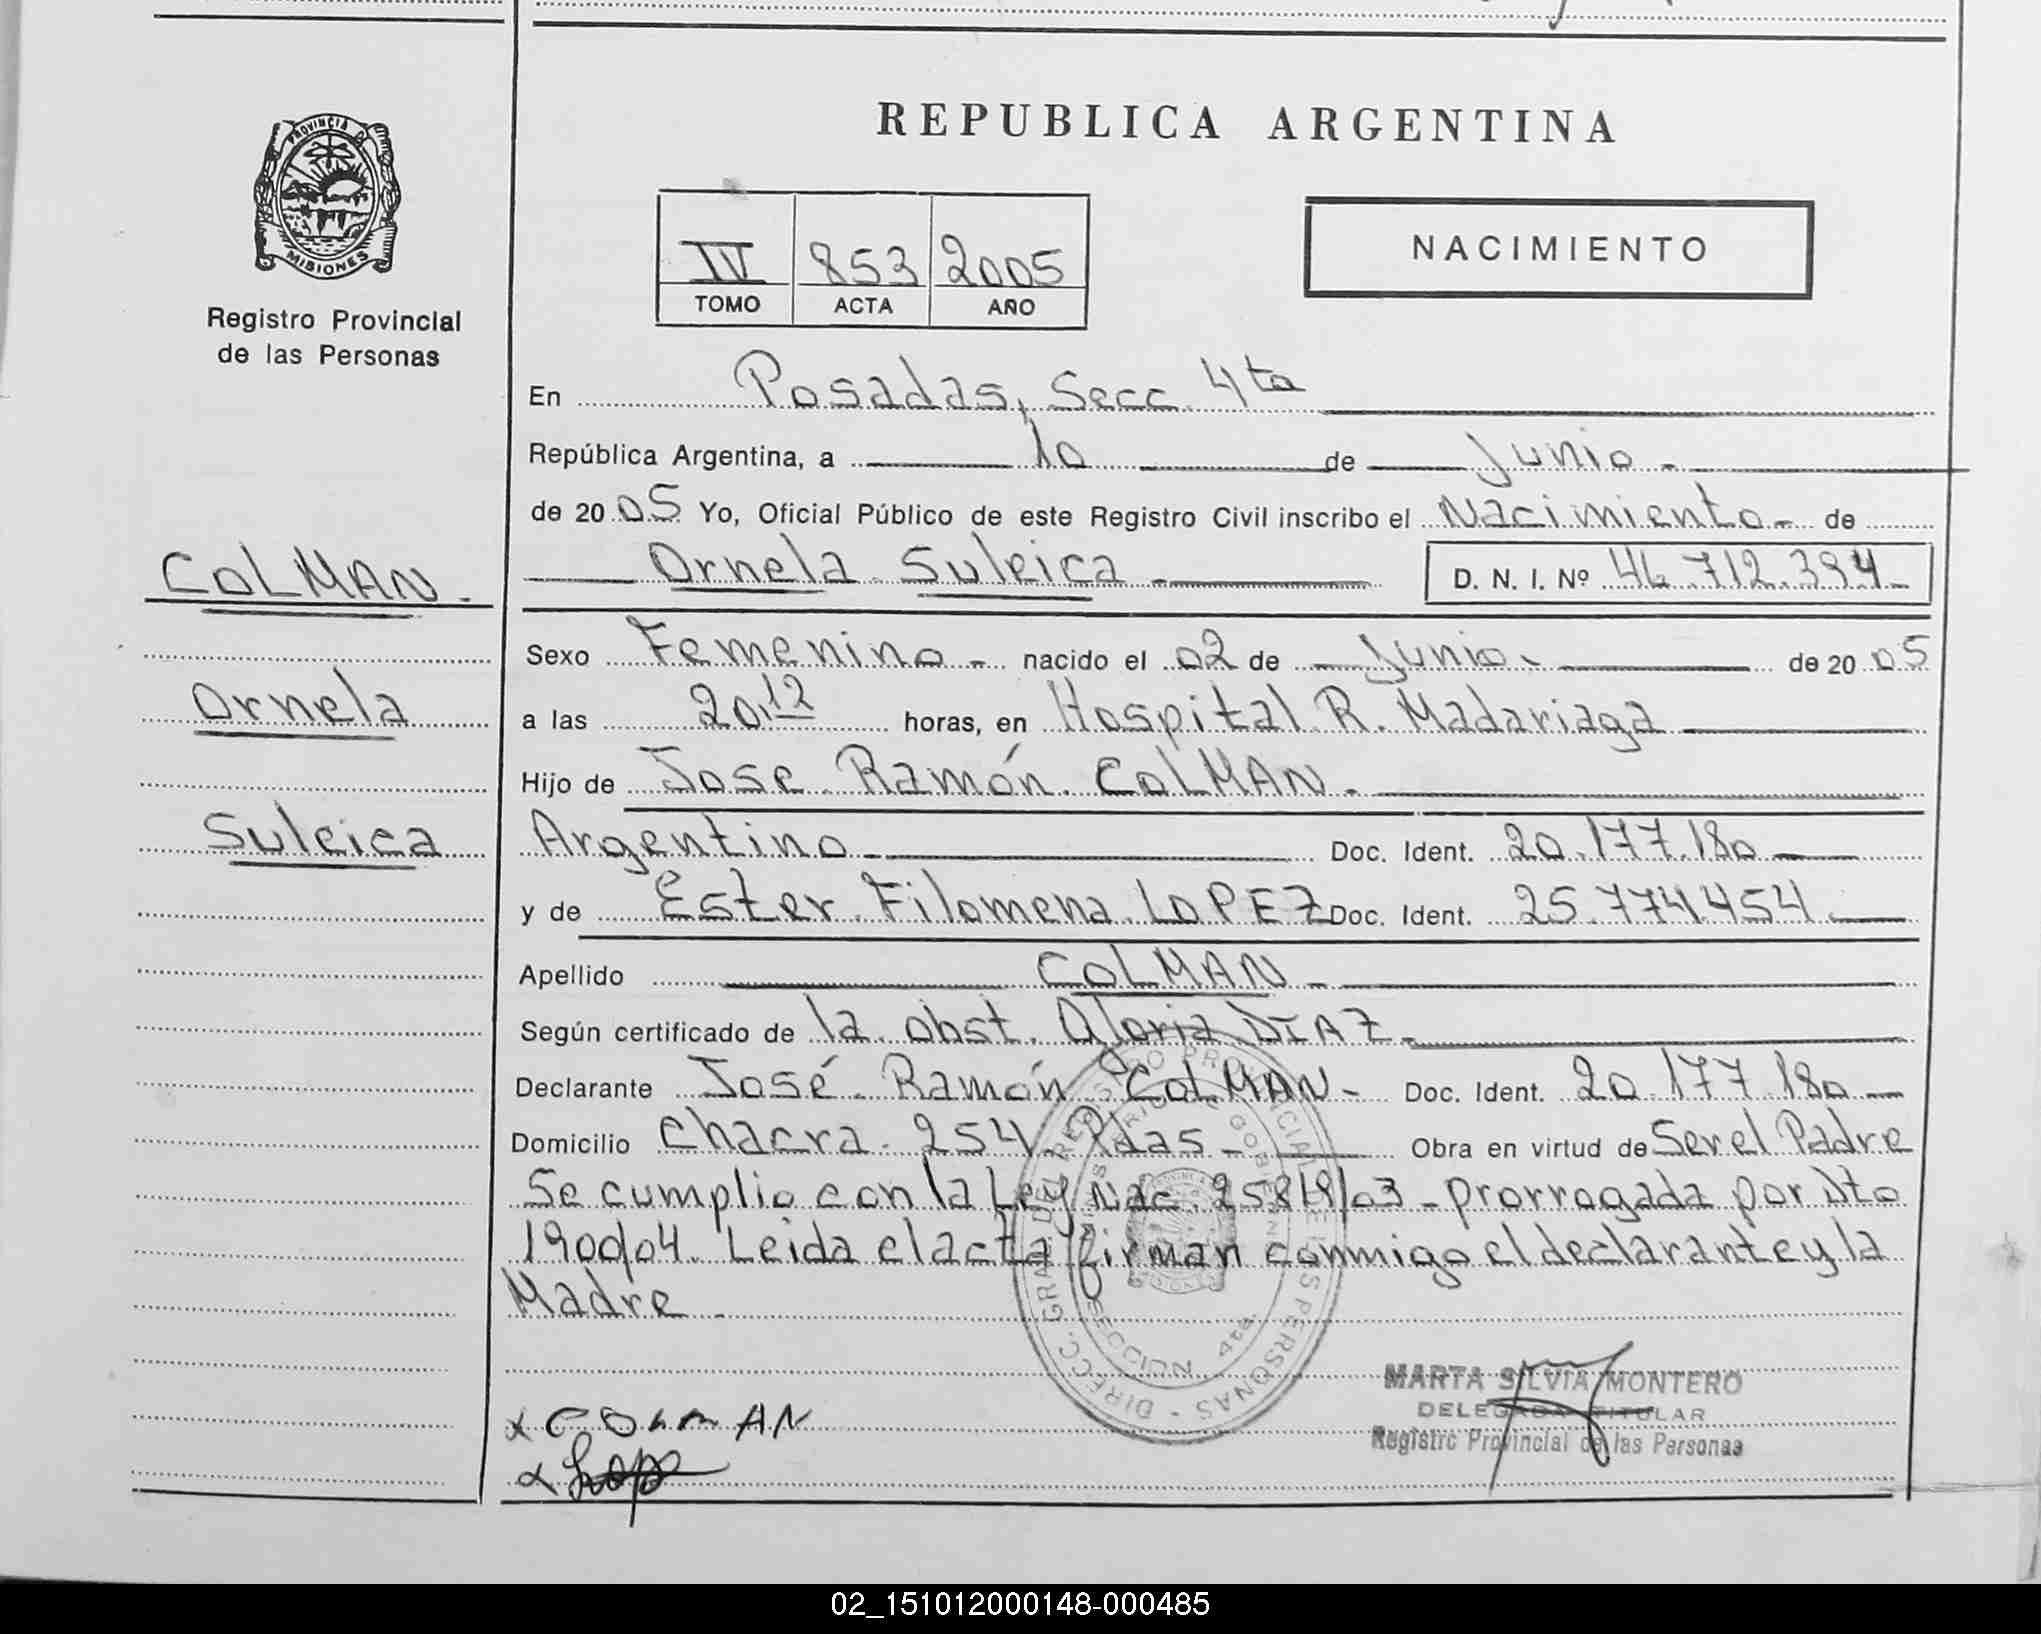 REPUBLICA ARGENTINA
PROVINCIA DE
MISIONES
Registro Provincial
de las Personas
IV 853 2005
TOMO ACTA AÑO
NACIMIENTO
En Posadas, Secc. 4ta
República Argentina, a 10 de Junio -
de 2005 Yo, Oficial Público de este Registro Civil inscribo el Nacimiento - de
COLMAN -
Ornela Suleica - D. N. I. Nº 46.712.394 -
Sexo Femenino - nacido el 02 de Junio - de 2005
Ornela
a las 20,12 horas, en Hospital R. Madariaga
Hijo de Jose Ramón COLMAN -
Suleica
Argentino - Doc. Ident. 20.177.180 -
y de Ester Filomena LOPEZ Doc. Ident. 25.774.454 -
Apellido COLMAN -
Según certificado de la obst. Gloria DIAZ -
Declarante José Ramón COLMAN - Doc. Ident. 20.177.180 -
Domicilio Chacra 254 Pdas - Obra en virtud de Ser el Padre
Se cumplio con la Ley Nac. 25819/03 - prorrogada por Dto
1900/04. Leida el acta firman conmigo el declarante y la
Madre -
DIRECC. GRAL DEL REGISTRO PROVINCIAL DE LAS PERSONAS -
SECCION 4ta.
MARTA SILVIA MONTERO
DELEGADA TITULAR
Registro Provincial de las Personas
x COLMAN
x Lop
02_151012000148-000485